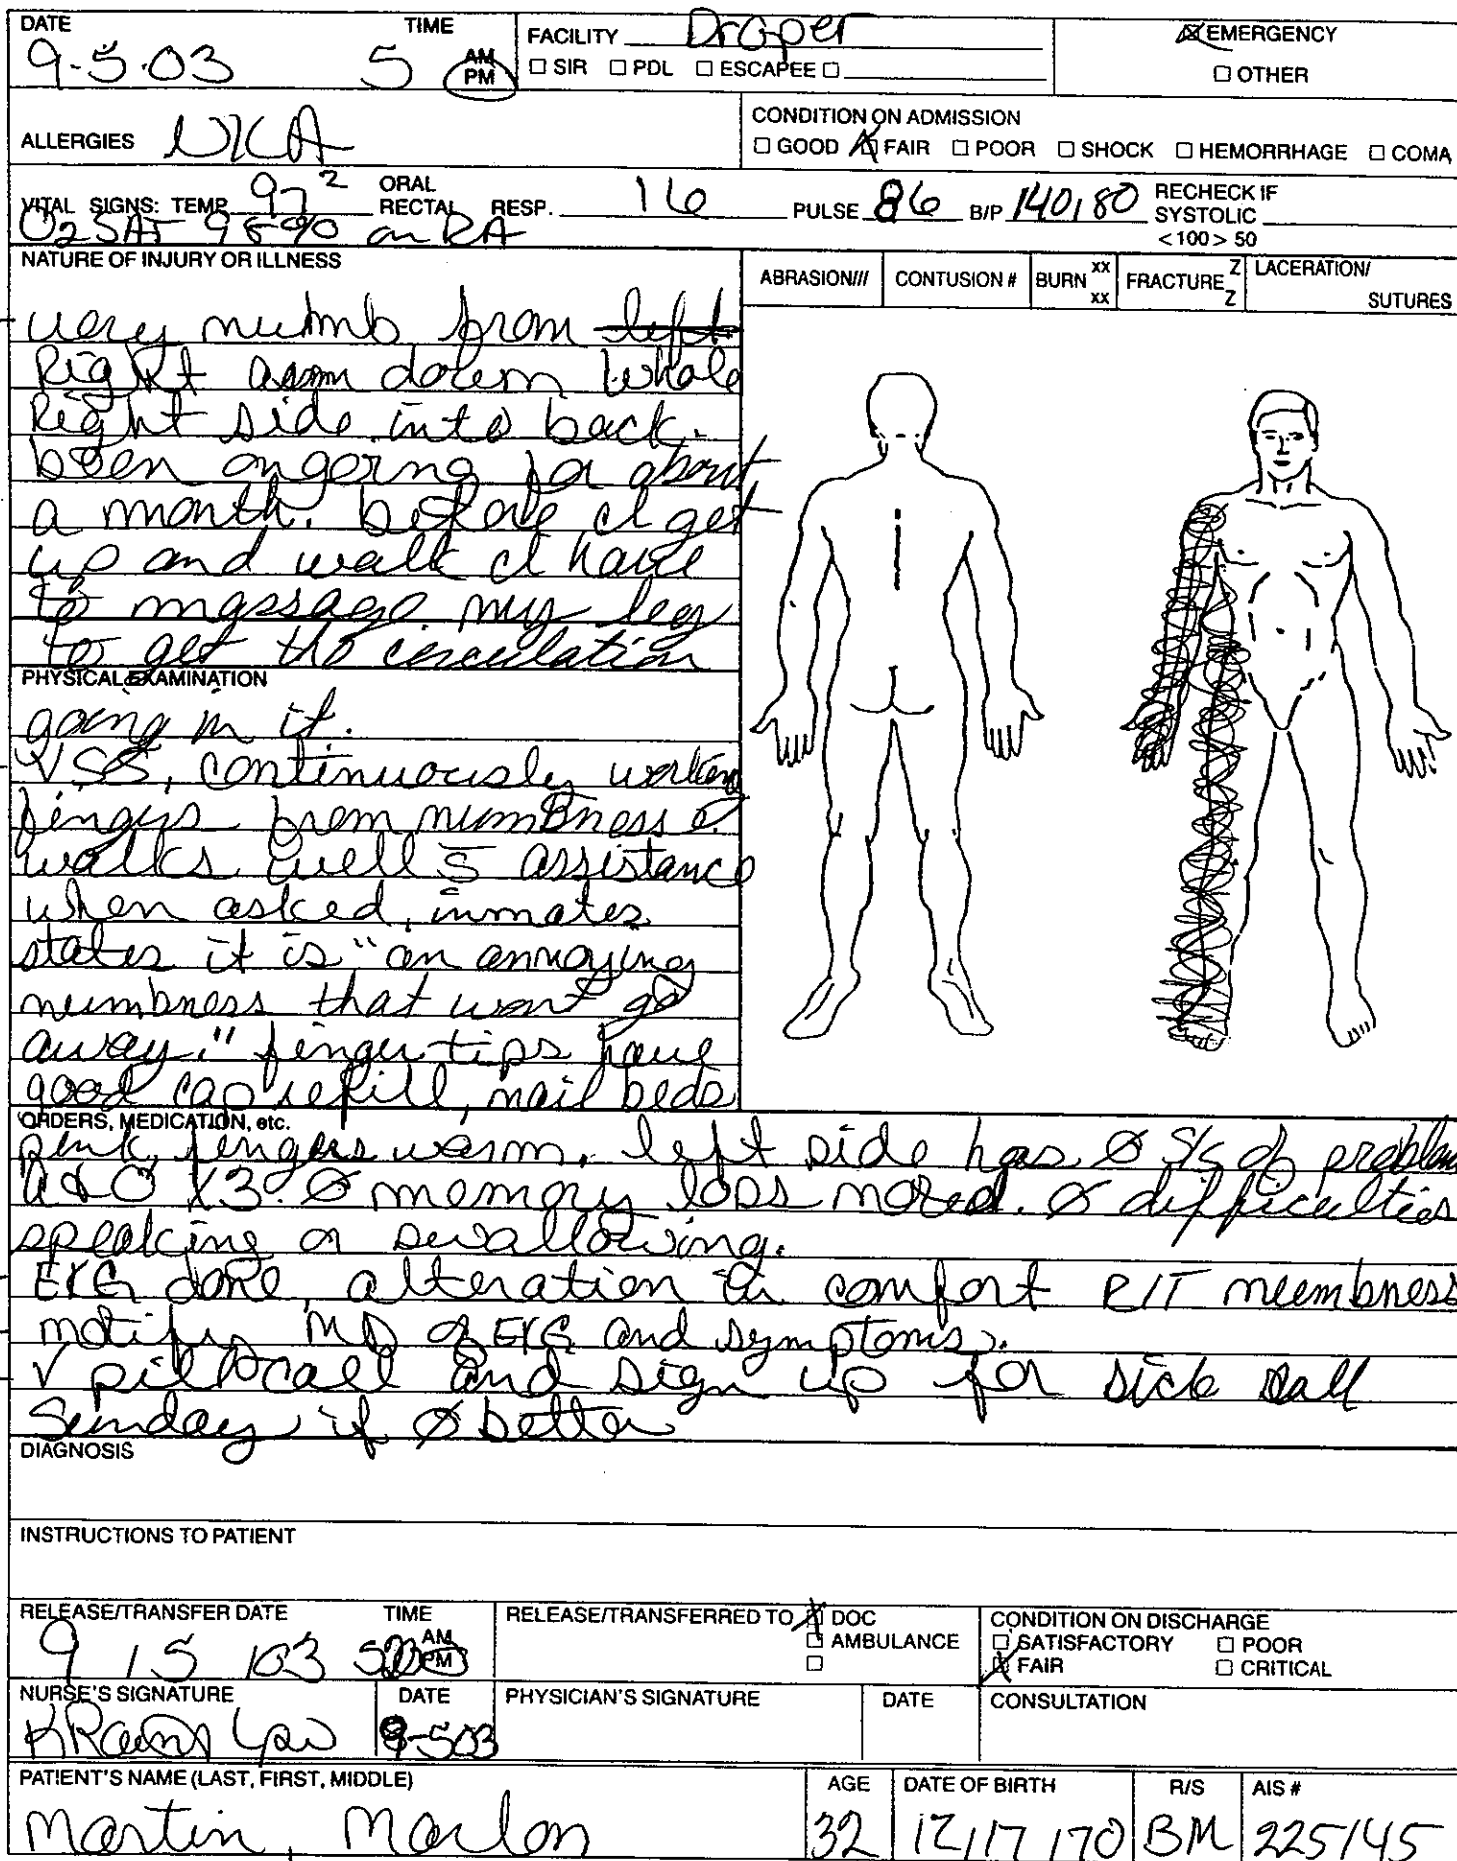 DATE TIME FACILITY Draper ☒ EMERGENCY
9-5-03 5 AM PM □ SIR □ PDL □ ESCAPEE □ □ OTHER
ALLERGIES NKA CONDITION ON ADMISSION
□ GOOD ☒ FAIR □ POOR □ SHOCK □ HEMORRHAGE □ COMA
VITAL SIGNS: TEMP 97² ORAL RECTAL RESP. 16 PULSE 86 B/P 140/80 RECHECK IF SYSTOLIC <100> 50
O2 SAT 98% on RA
NATURE OF INJURY OR ILLNESS ABRASION/// CONTUSION # BURN xx xx FRACTURE Z Z LACERATION/ SUTURES
very numb from left
Right arm down whole
Right side into back.
been ongoing for about
a month. before I get
up and walk I have
to massage my leg
to get the circulation
PHYSICAL EXAMINATION
going in it.
VSS, continuously working
fingers from numbness
walks well s̄ assistance
when asked, inmates
states it is "an annoying
numbness that wont go
away." finger tips have
good cap refill, nail beds
ORDERS, MEDICATION, etc.
pink, fingers warm. left side has Ø S/S of problem
A&O X3. Ø memory loss noted. Ø difficulties
speaking or swallowing.
EKG done, alteration in comfort R/T numbness
notify MD of EKG and symptoms.
√ pill call and sign up for sick call
Sunday if Ø better
DIAGNOSIS
INSTRUCTIONS TO PATIENT
RELEASE/TRANSFER DATE TIME RELEASE/TRANSFERRED TO ☒ DOC CONDITION ON DISCHARGE
9 / 5 / 03 AM PM □ AMBULANCE □ SATISFACTORY □ POOR
□ ☒ FAIR □ CRITICAL
NURSE'S SIGNATURE DATE PHYSICIAN'S SIGNATURE DATE CONSULTATION
9-503
PATIENT'S NAME (LAST, FIRST, MIDDLE) AGE DATE OF BIRTH R/S AIS #
Martin, Marlon 32 12/17/70 BM 225145